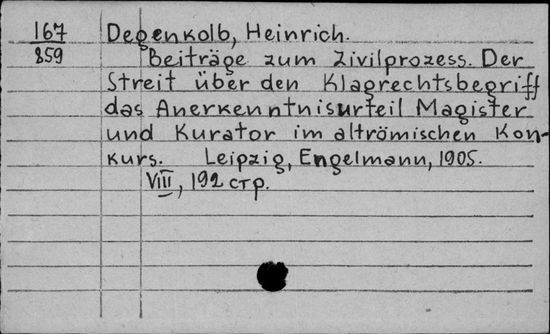 167 Degenkolb, Heinrich.
859 Beiträge zum Zivilprozess. Der
Streit über den Klagrechtsbegriff
das Anerkenntnisurteil Magister
und Kurator im altrömischen Kon-
kurs. Leipzig, Engelmann, 1905.
VIII, 192 стр.